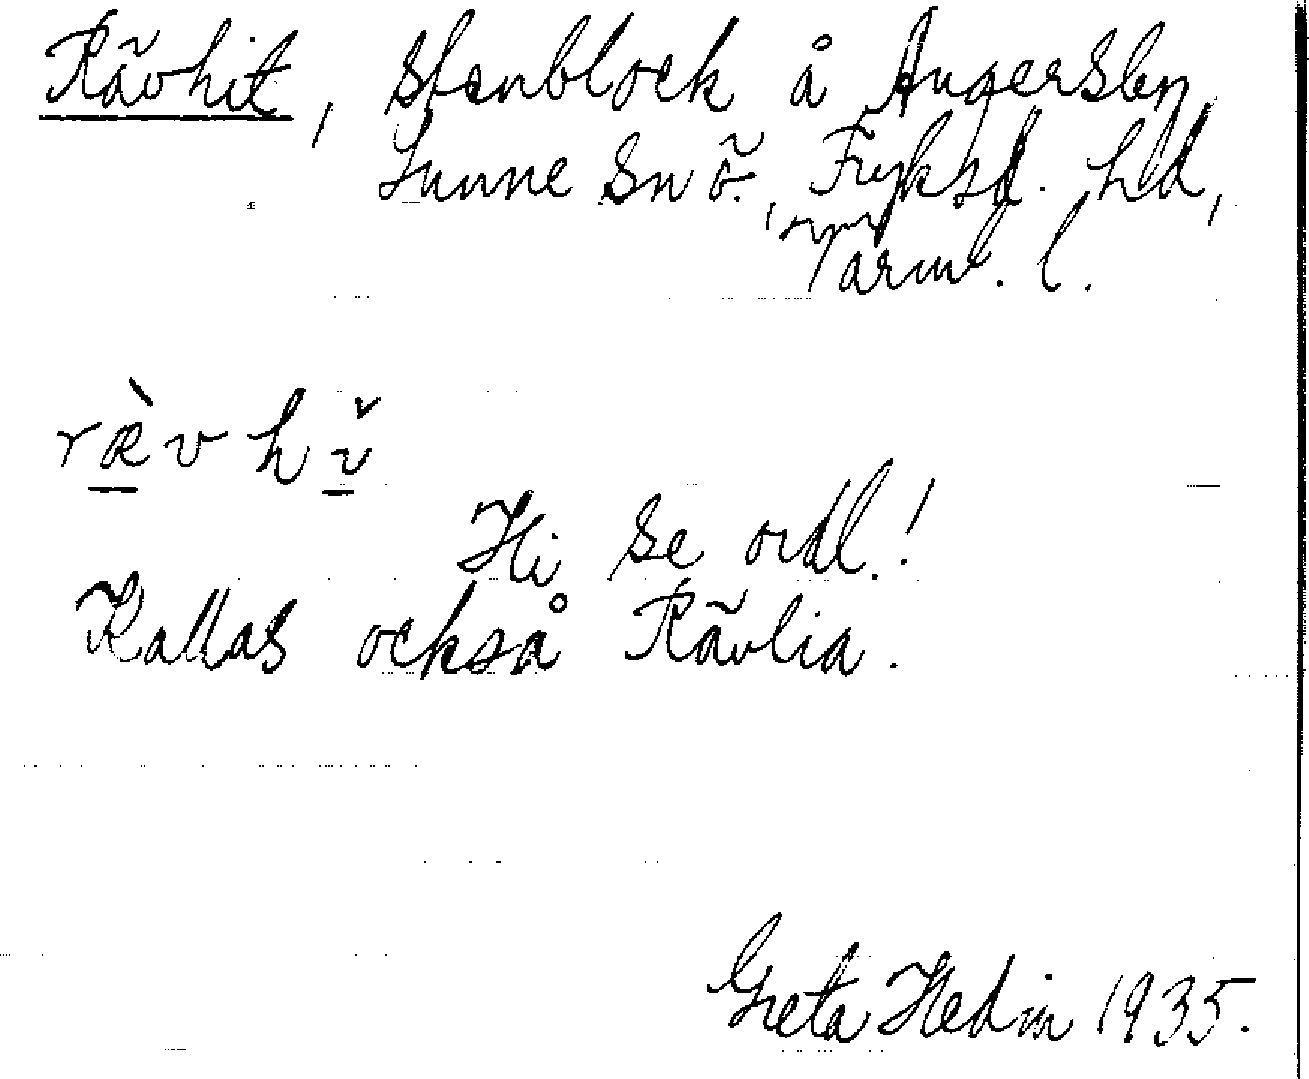 Rävhit, stenblock å Ångersby,
Sunne sn ö., Fryksd. hd,
Värml. l.
rævhi
Hi se ordl.!
Kallas också Rävlia.
Greta Hedin 1935.